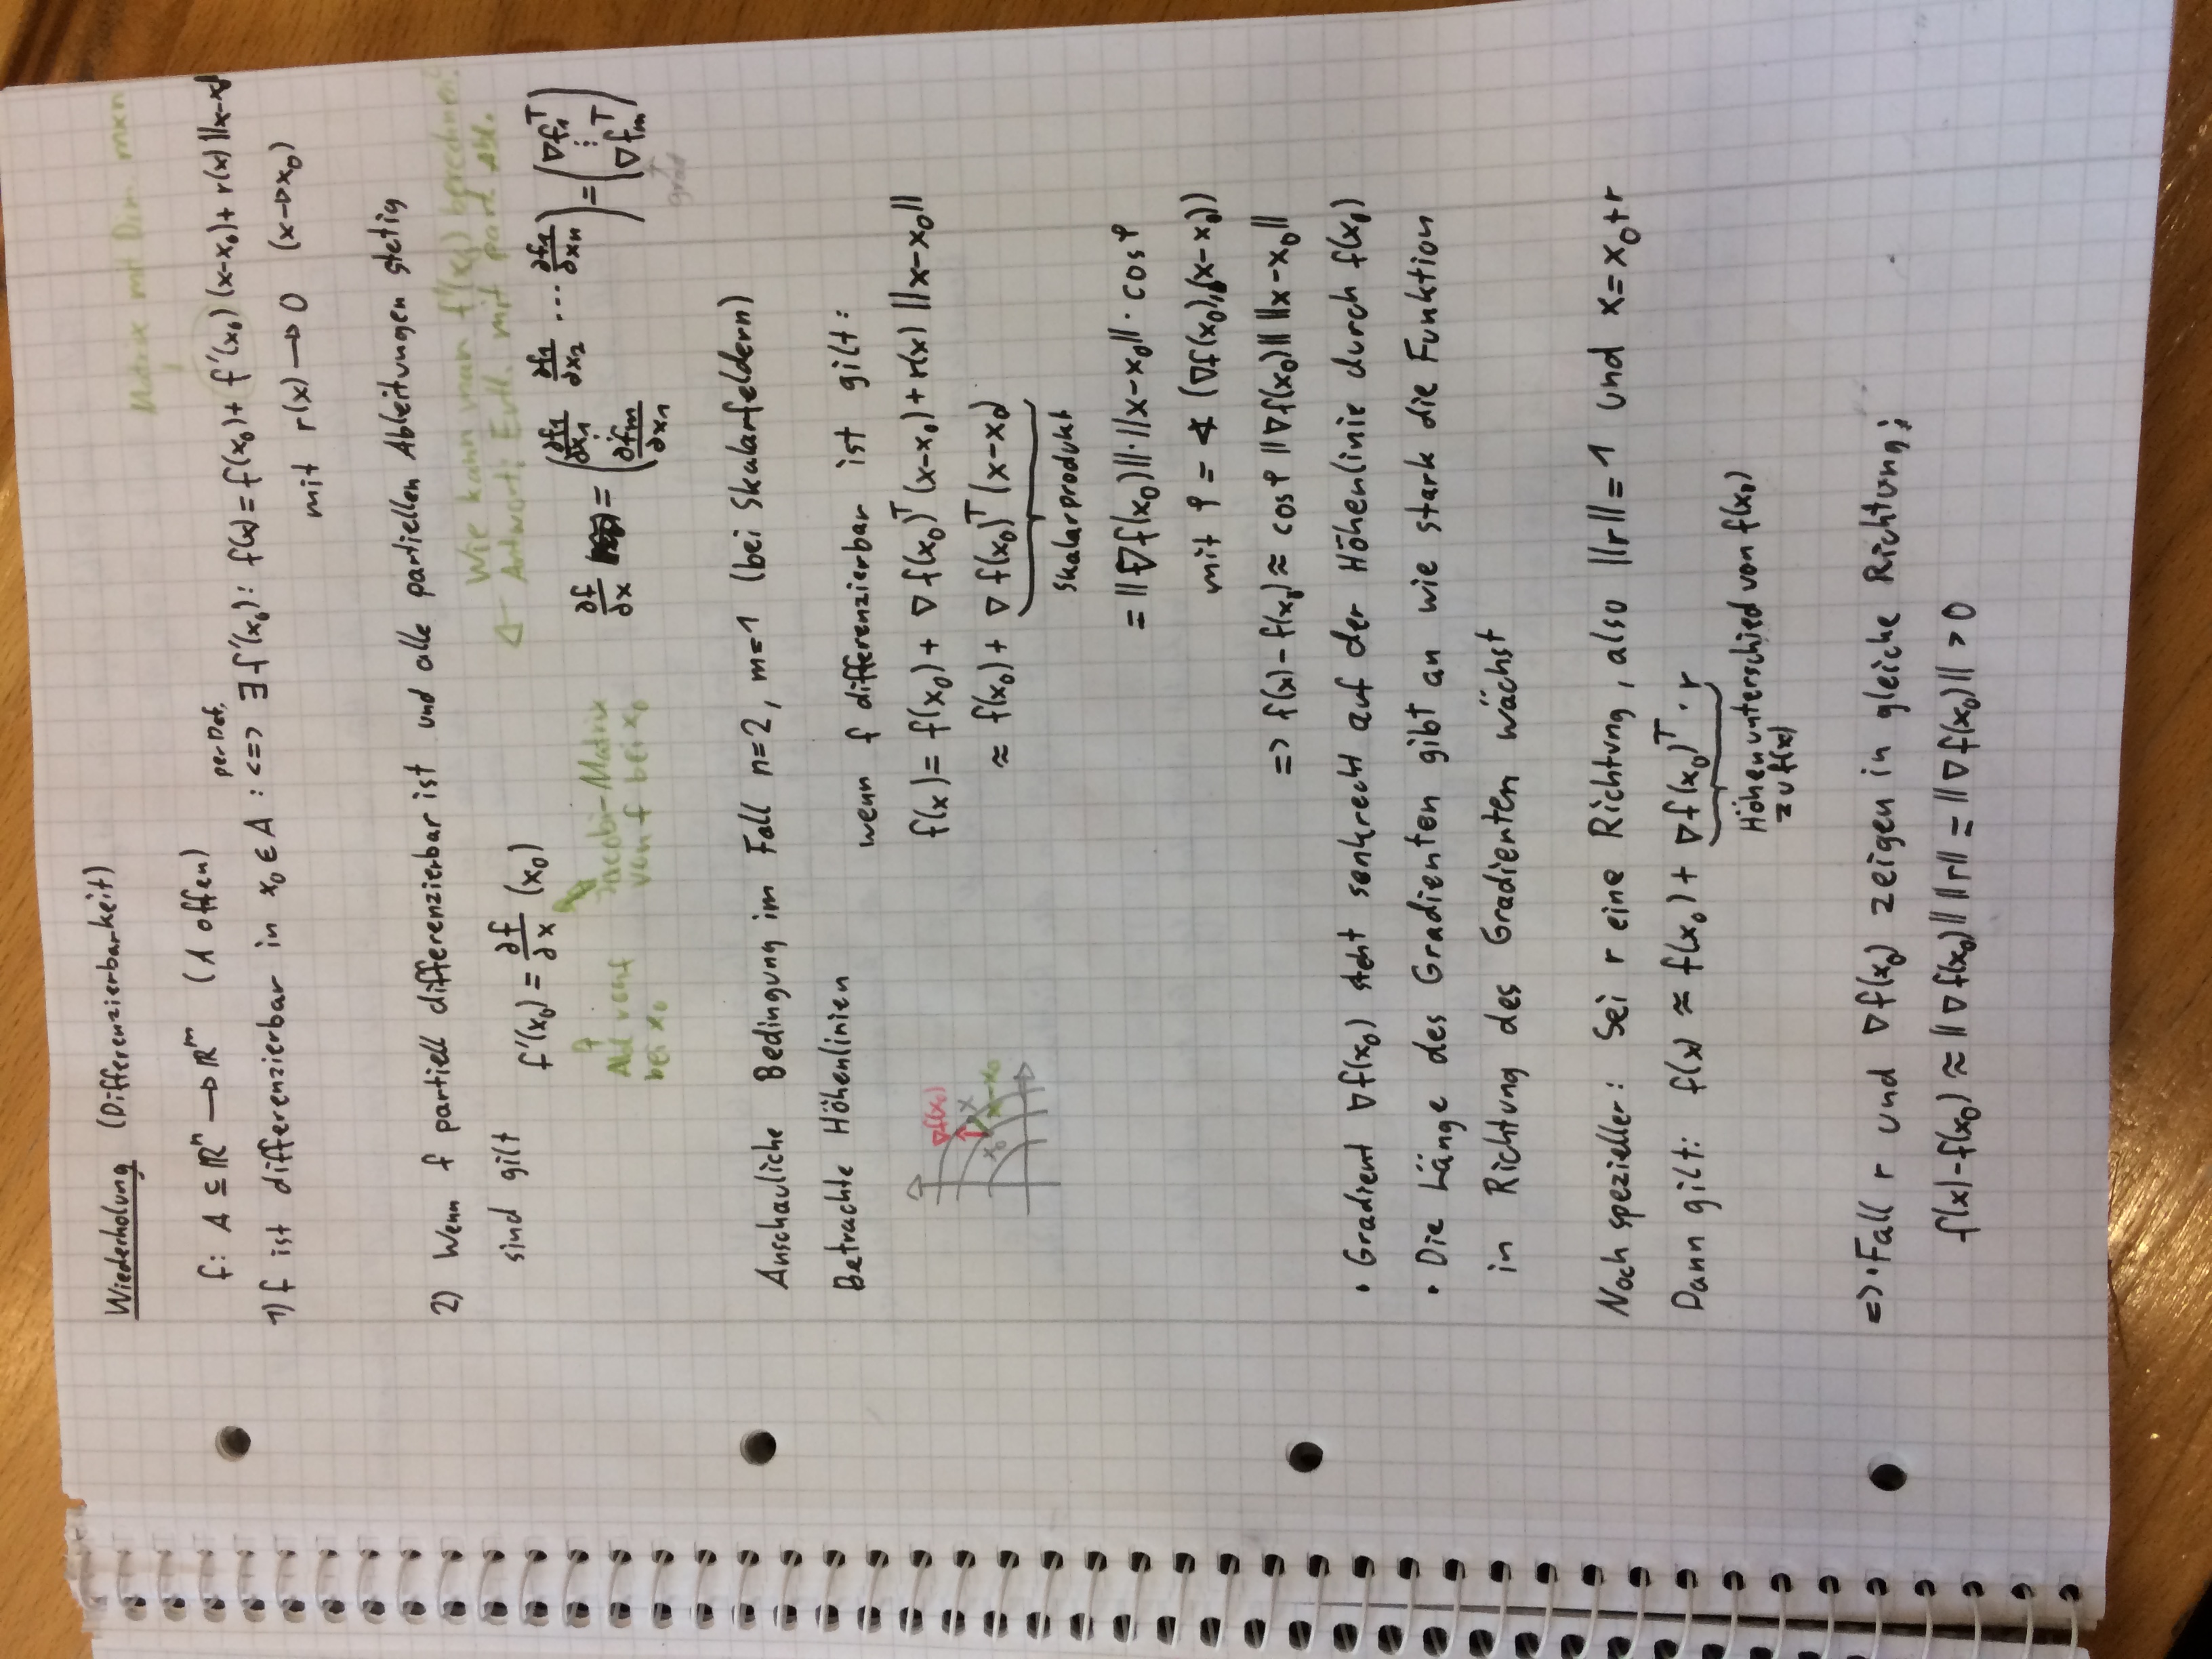 Wiederholung (Differenzierbarkeit)
Matrix mit Dim. m×n
f: A ⊆ ℝⁿ → ℝᵐ (A offen)
per Def.
1) f ist differenzierbar in x₀ ∈ A :<=> ∃ f'(x₀): f(x) = f(x₀) + f'(x₀) (x-x₀) + r(x) ||x-x₀||
mit r(x) → 0 (x→x₀)
2) Wenn f partiell differenzierbar ist und alle partiellen Ableitungen stetig
Wie kann man f'(x₀) berechnen?
sind gilt
← Antwort: Evtl. mit part. Abl.
f'(x₀) = ∂f/∂x (x₀)
Abl von f bei x₀
Jacobi-Matrix von f bei x₀
∂f/∂x = (∂f₁/∂x₁ ∂f₁/∂x₂ ... ∂f₁/∂xₙ ⋮ ∂fₘ/∂x₁) = (∇f₁ᵀ ⋮ ∇fₘᵀ)
grad
Anschauliche Bedingung im Fall n=2, m=1 (bei Skalarfeldern)
Betrachte Höhenlinien
∇f(x₀)
x
x₀ x-x₀
wenn f differenzierbar ist gilt:
f(x) = f(x₀) + ∇f(x₀)ᵀ (x-x₀) + r(x) ||x-x₀||
≈ f(x₀) + ∇f(x₀)ᵀ (x-x₀)
Skalarprodukt
= ||∇f(x₀)||·||x-x₀||· cos φ
mit φ = ∢ (∇f(x₀), (x-x₀))
=> f(x) - f(x₀) ≈ cos φ ||∇f(x₀)|| ||x-x₀||
• Gradient ∇f(x₀) steht senkrecht auf der Höhenlinie durch f(x₀)
• Die Länge des Gradienten gibt an wie stark die Funktion
in Richtung des Gradienten wächst
Noch spezieller: Sei r eine Richtung, also ||r|| = 1 und x = x₀+r
Dann gilt: f(x) ≈ f(x₀) + ∇f(x₀)ᵀ · r
Höhenunterschied von f(x₀)
zu f(x)
=> • Fall r und ∇f(x₀) zeigen in gleiche Richtung:
f(x) - f(x₀) ≈ ||∇f(x₀)|| ||r|| = ||∇f(x₀)|| > 0